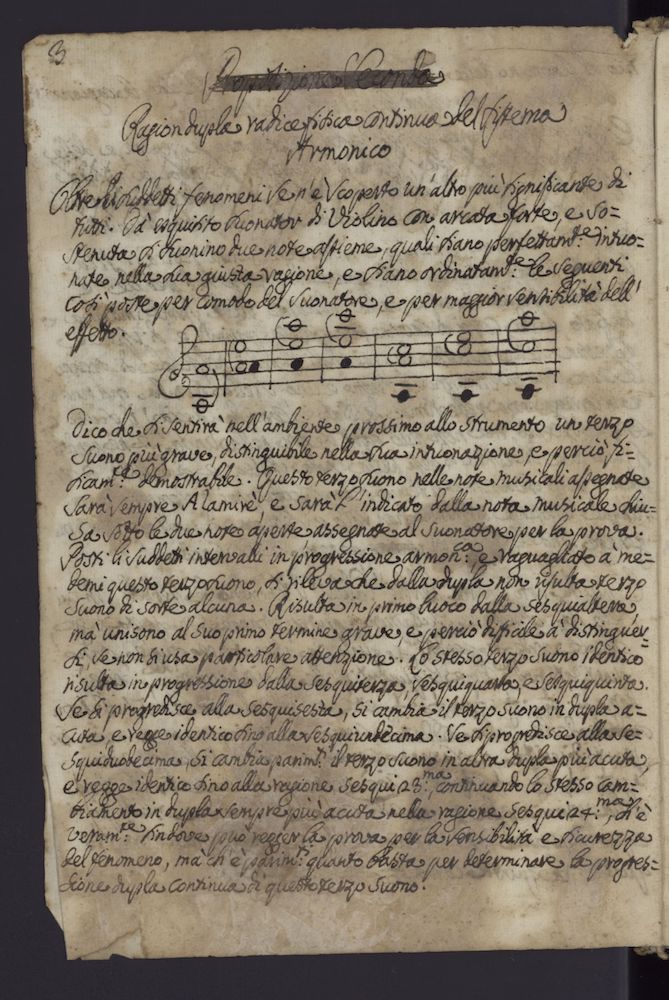 3
Proposizione Seconda
Ragion dupla radice fisica continua del sistema
Armonico
Oltre li suddetti fenomeni se n'è scoperto un'altro più significante di
tutti. Da esquisito suonator di Violino con arcata forte, e so=
stenuta si suonino due note assieme, quali siano perfettam.te intuo=
nate nella sua giusta ragione, e siano ordinatam.te le seguenti
così poste per comodo del suonatore, e per maggior sensibilità dell'
effetto.
Dico che si sentirà nell'ambiente prossimo allo strumento un terzo
suono più grave, distinguibile nella sua intuonazione, e perciò fi=
sicam.te demostrabile. Questo terzo suono nelle note musicali assegnate
sarà sempre Alamirè, e sarà l'indicato dalla nota musicale chiu=
sa sotto le due note aperte assegnate al suonatore per la prova.
Posti li suddetti intervalli in progressione armon:ca, e raguagliato a' me=
demi questo terzo suono, si rileva che dalla dupla non risulta terzo
suono di sorte alcuna. Risulta in primo luoco dalla sesquialtera,
mà unisono al suo primo termine grave, e perciò difficile a' distinguer=
si se non si usa particolare attenzione. Lo stesso terzo suono identico
risulta in progressione dalla sesquiterza, sesquiquarta, e sesquiquinta.
Se si progredisce alla sesquisesta, si cambia il terzo suono in dupla a=
cuta, e regge identico sino alla sesquiundecima. Se si progredisce alla se=
squiduodecima, si cambia parim.te il terzo suono in altra dupla più acuta,
e regge identico sino alla ragione sesqui 23:ma, continuando lo stesso cam=
biamento in dupla sempre più acuta nella ragione sesqui 24:ma, ch'è
veram.te sindove può regger la prova per la sensibilità e sicurezza
del fenomeno, mà ch'è parim.te quanto basta per determinare la progres=
sione dupla continua di questo terzo suono.